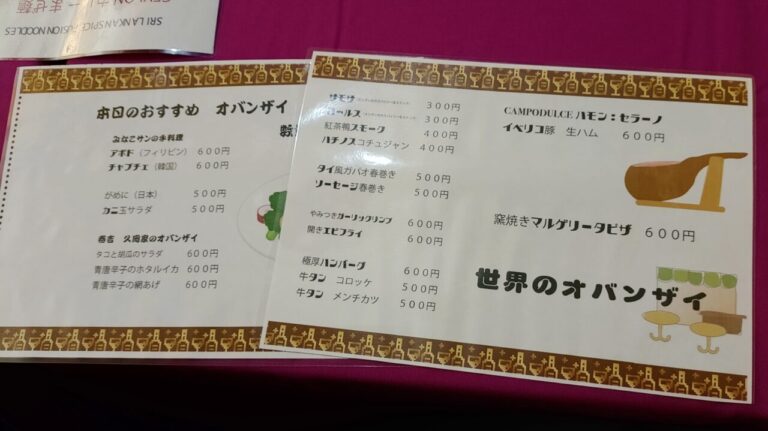 SRI LANKAN SPICE FUSION NOODLES
CEYLON カレーまぜ麺
本日のおすすめ オバンザイ
みなこサンの手料理
アボド（フィリピン） 600円
チャプチェ（韓国） 600円
がめに（日本） 500円
カニ玉サラダ 500円
久岡家のオバンザイ
タコと胡瓜のサラダ 600円
青唐辛子のホタルイカ 600円
青唐辛子の網あげ 600円
サモサ 300円
ロールス 300円
紅茶鴨スモーク 400円
ハチノスコチュジャン 400円
タイ風ガパオ春巻き 500円
ソーセージ春巻き 500円
やみつきガーリックシュリンプ 600円
開きエビフライ 600円
極厚ハンバーグ 600円
牛タン コロッケ 500円
牛タン メンチカツ 500円
CAMPODULCE ハモン：セラーノ
イベリコ豚 生ハム 600円
窯焼きマルゲリータピザ 600円
世界のオバンザイ